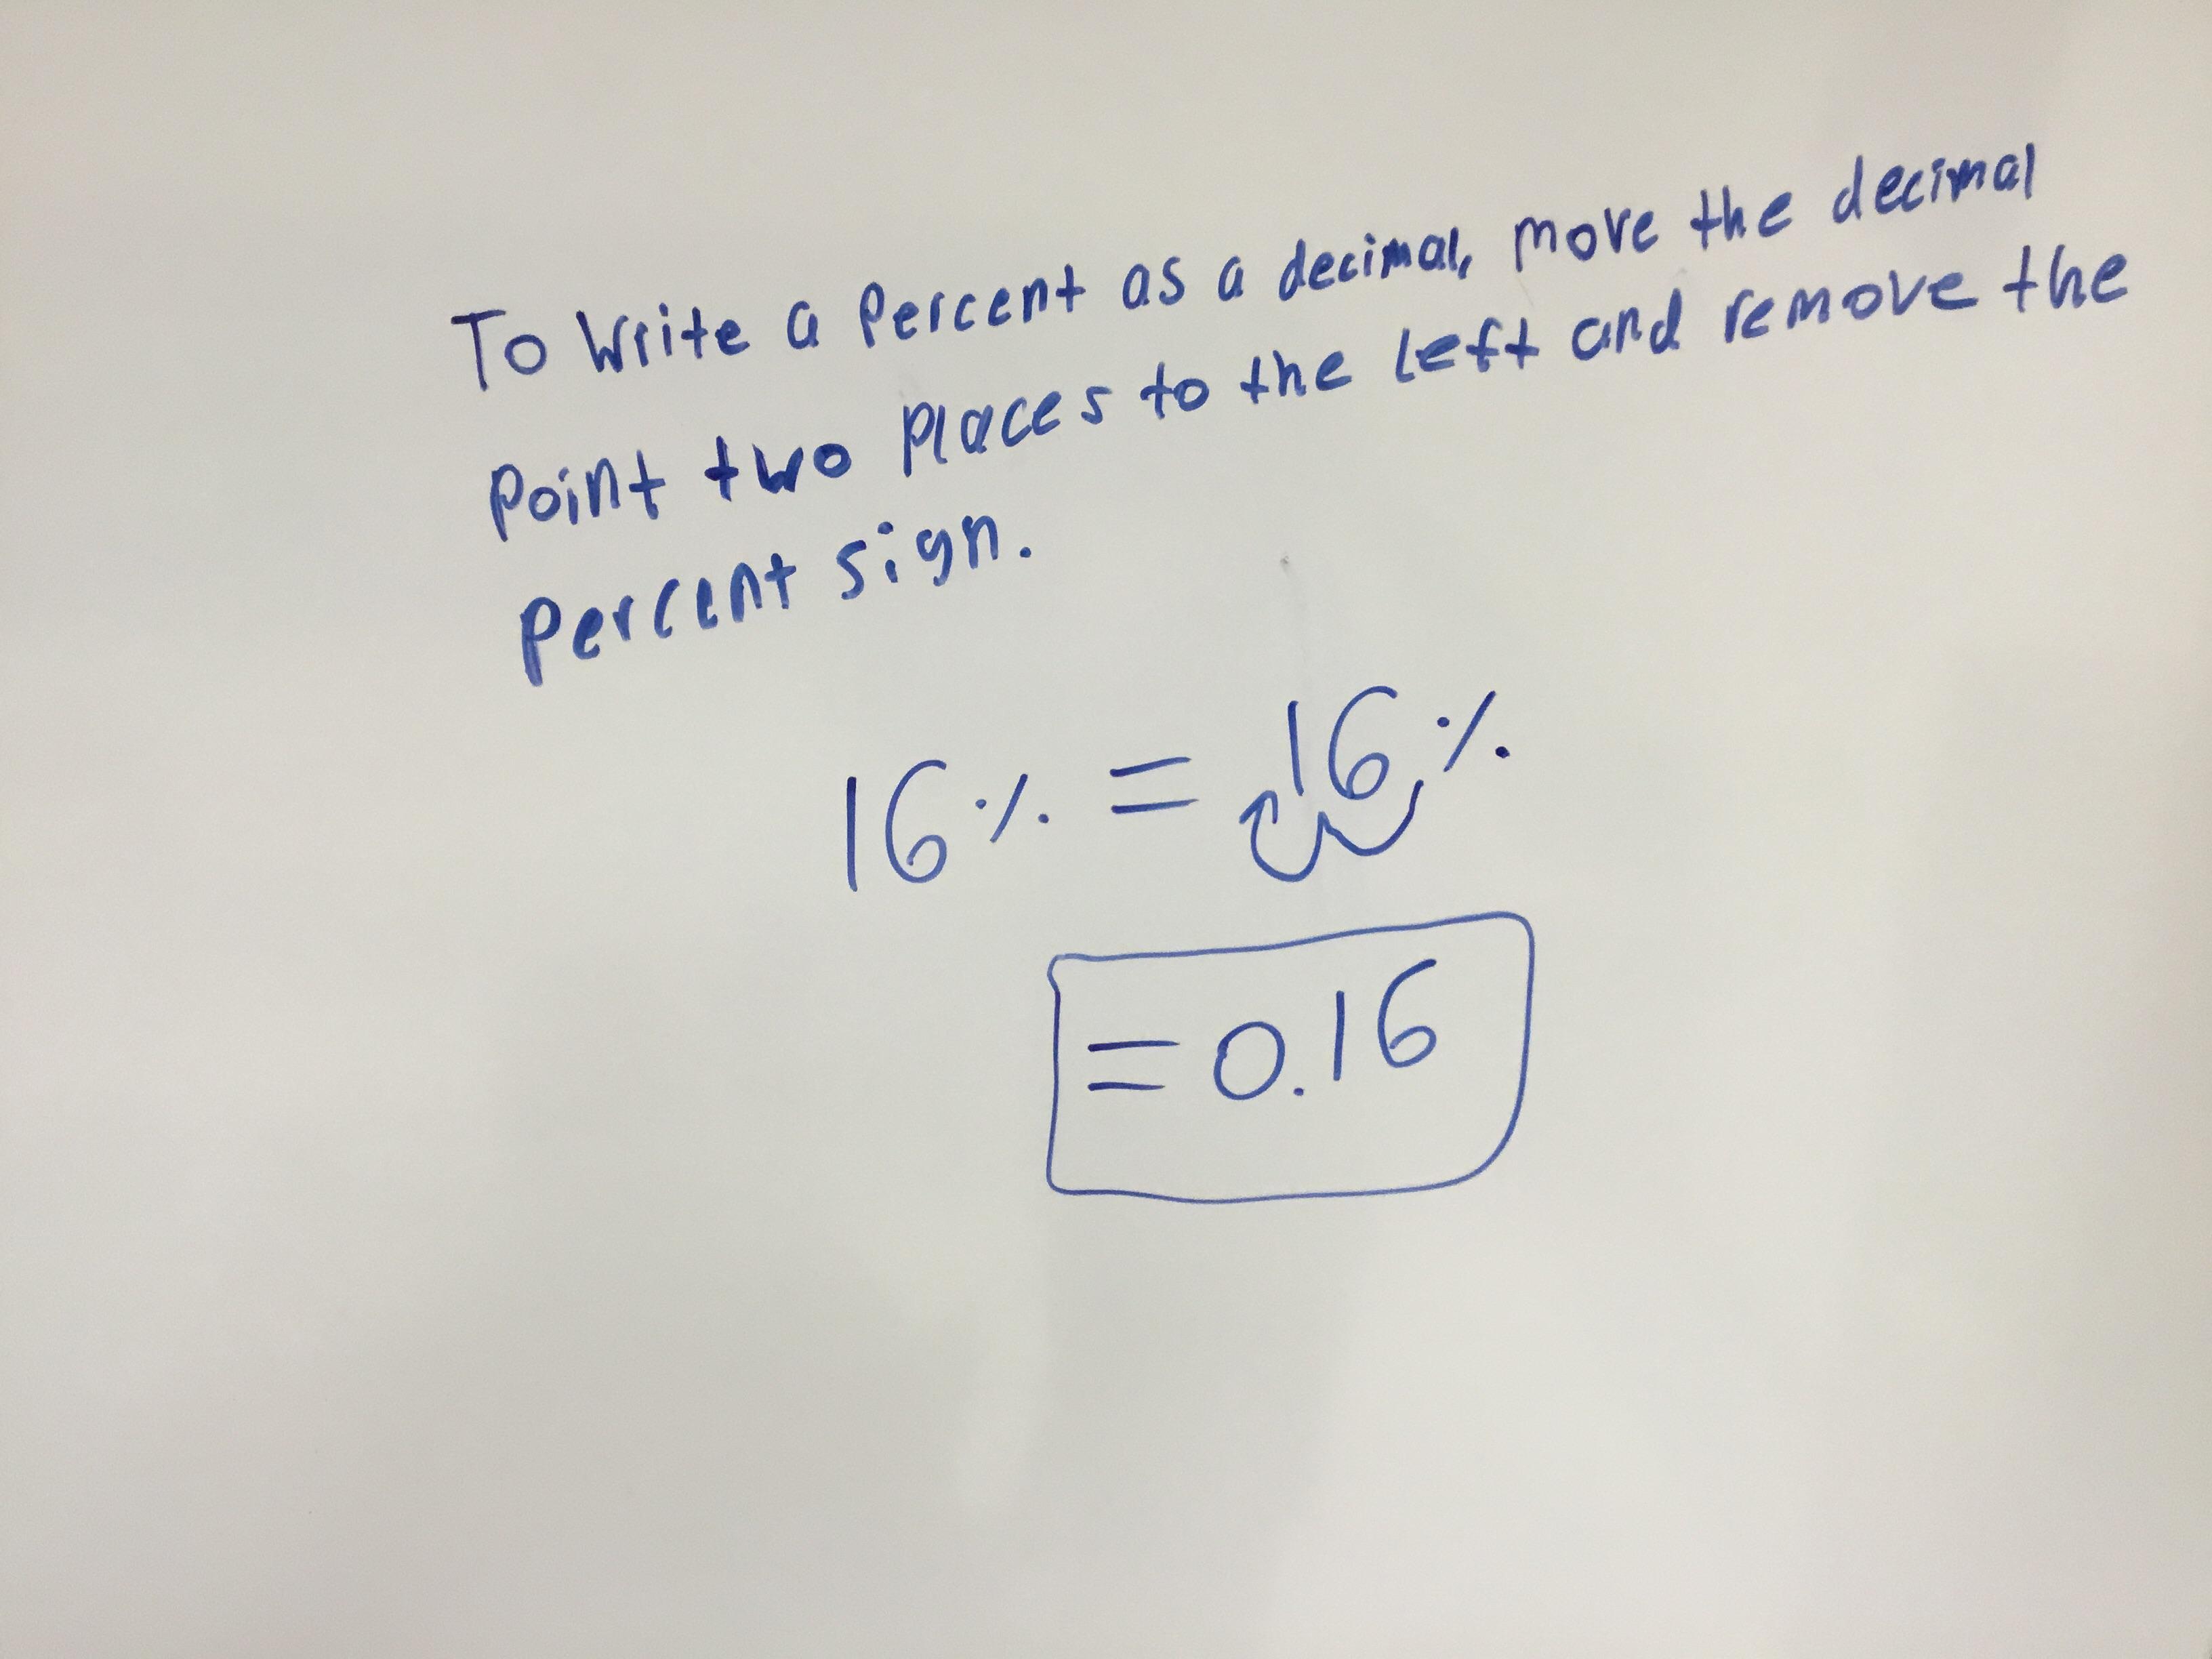 To Write a Percent as a decimal, move the decimal
Point two Places to the left and remove the
Percent sign.
16% = 16%
= 0.16